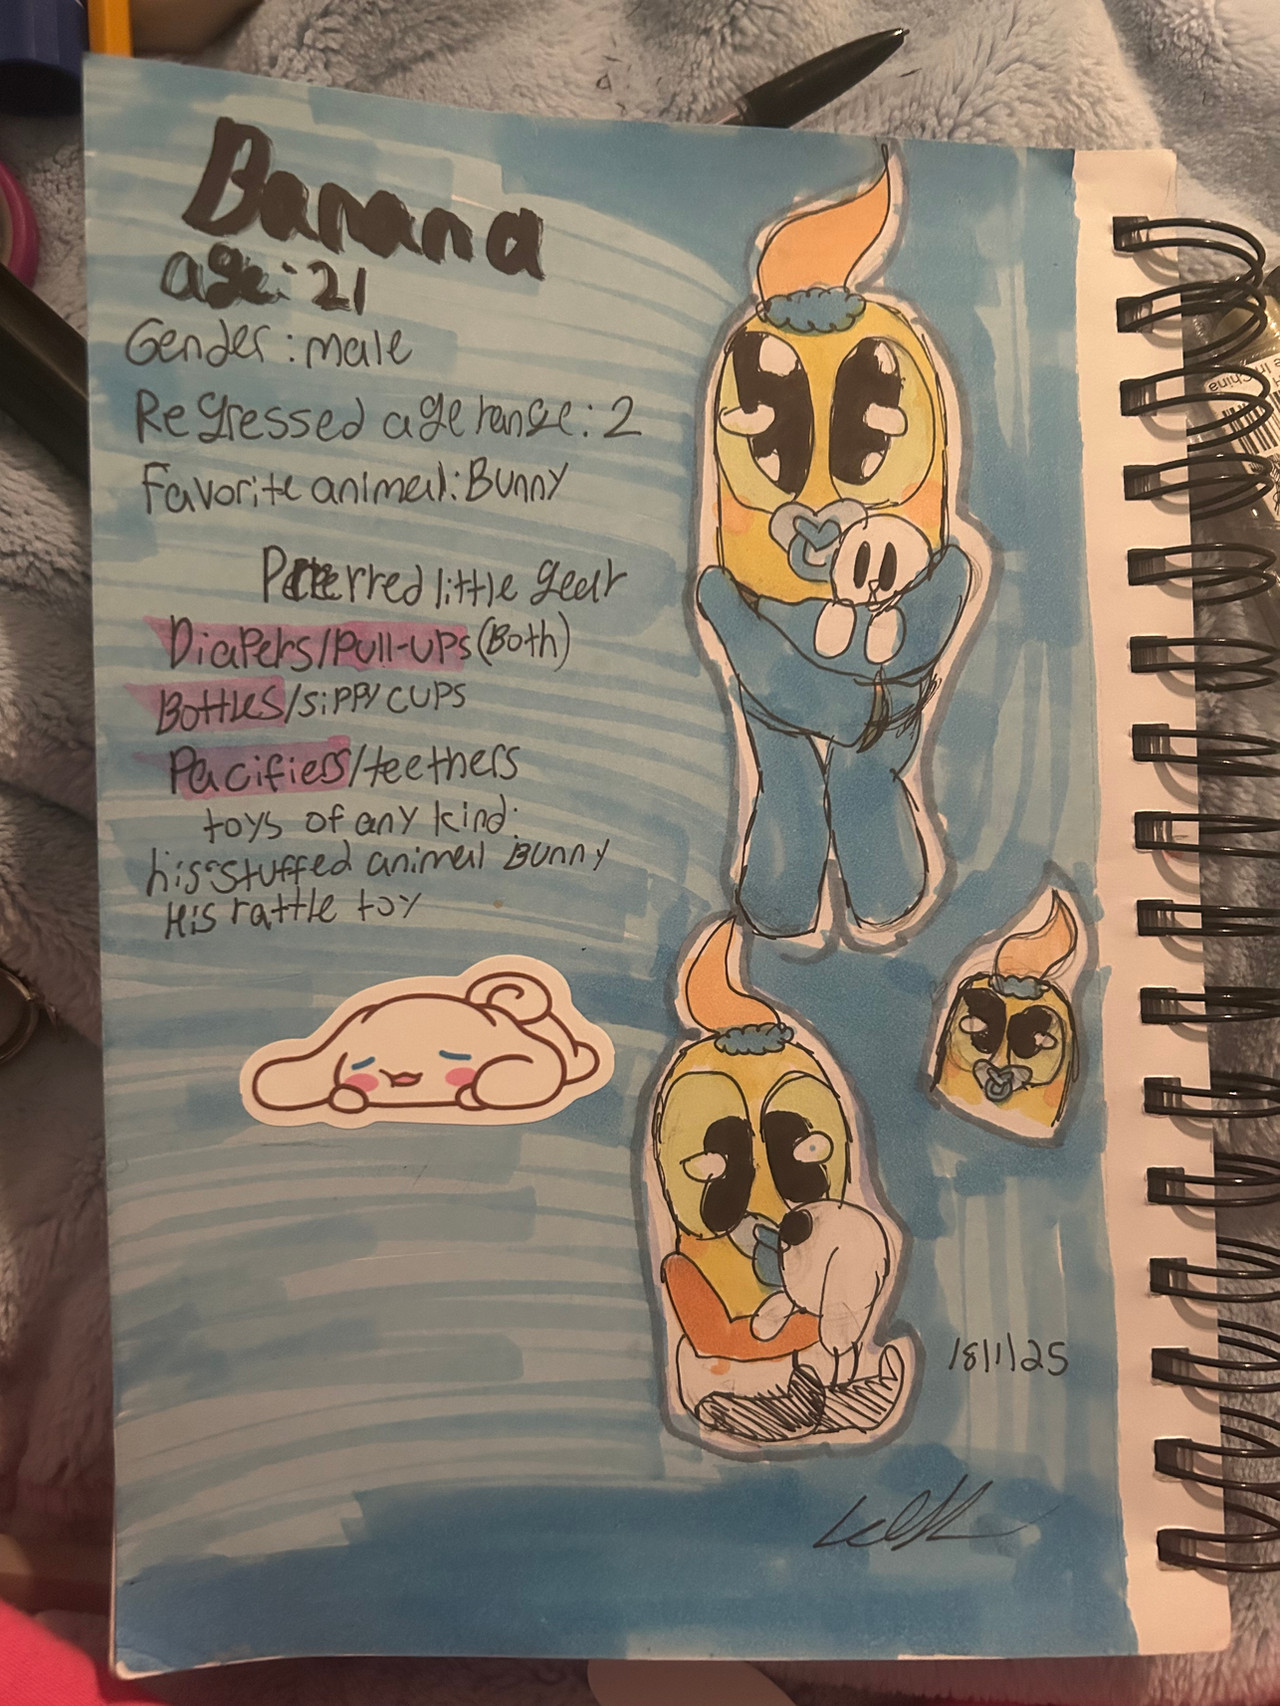 Banana
age: 21
Gender: male
Regressed age range: 2
Favorite animal: Bunny
Preferred little gear
Diapers/Pull-ups (Both)
Bottles/sippy cups
Pacifiers/teethers
toys of any kind:
his stuffed animal Bunny
His rattle toy
18/1/25